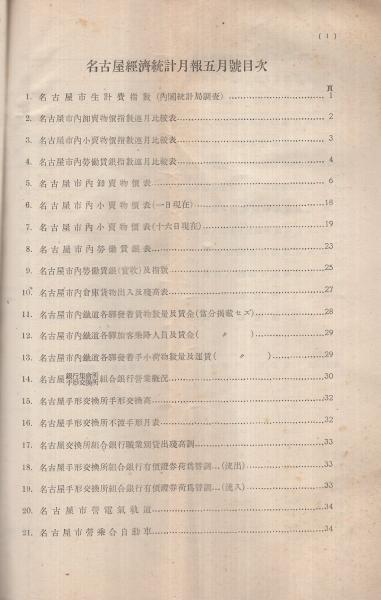 ( 1 )
名古屋經濟統計月報五月號目次
頁
1. 名古屋市生計費指數(內閣統計局調査)……1
2. 名古屋市內卸賣物價指數逐月比較表……2
3. 名古屋市內小賣物價指數逐月比較表……3
4. 名古屋市內勞働賃銀指數逐月比較表……4
5. 名古屋市內卸賣物價表……6
6. 名古屋市內小賣物價表(一日現在)……18
7. 名古屋市內小賣物價表(十六日現在)……19
8. 名古屋市內勞働賃銀表……23
9. 名古屋市內勞働賃銀(實收)及指數……25
10. 名古屋市內倉庫貨物出入及殘高表……27
11. 名古屋市內鐵道各驛發着貨物數量及賃金(當分揭載セズ)……28
12. 名古屋市內鐵道各驛旅客乘降人員及賃金(〃)……29
13. 名古屋市內鐵道各驛發着手小荷物數量及運賃(〃)……29
14. 名古屋銀行集會所手形交換所組合銀行營業槪況……30
15. 名古屋手形交換所手形交換高……32
16. 名古屋手形交換所不渡手形月表……32
17. 名古屋交換所組合銀行職業別貸出殘高調……33
18. 名古屋手形交換所組合銀行有價證券荷爲替調…(流出)……33
19. 名古屋手形交換所組合銀行有價證券荷爲替調…(流入)……33
20. 名古屋市營電氣軌道……34
21. 名古屋市營乘合自動車……34